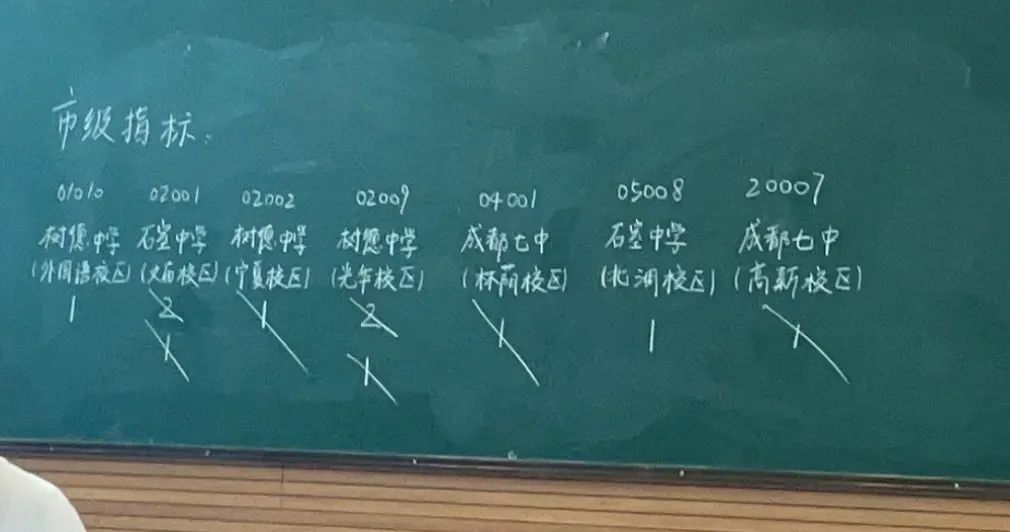 市级指标.
01010 02001 02002 02009 04001 05008 20007
树德中学 石室中学 树德中学 树德中学 成都七中 石室中学 成都七中
(外国语校区) (文庙校区) (宁夏校区) (光华校区) (林荫校区) (北湖校区) (高新校区)
1 2 1 2 1 1 1
1 1